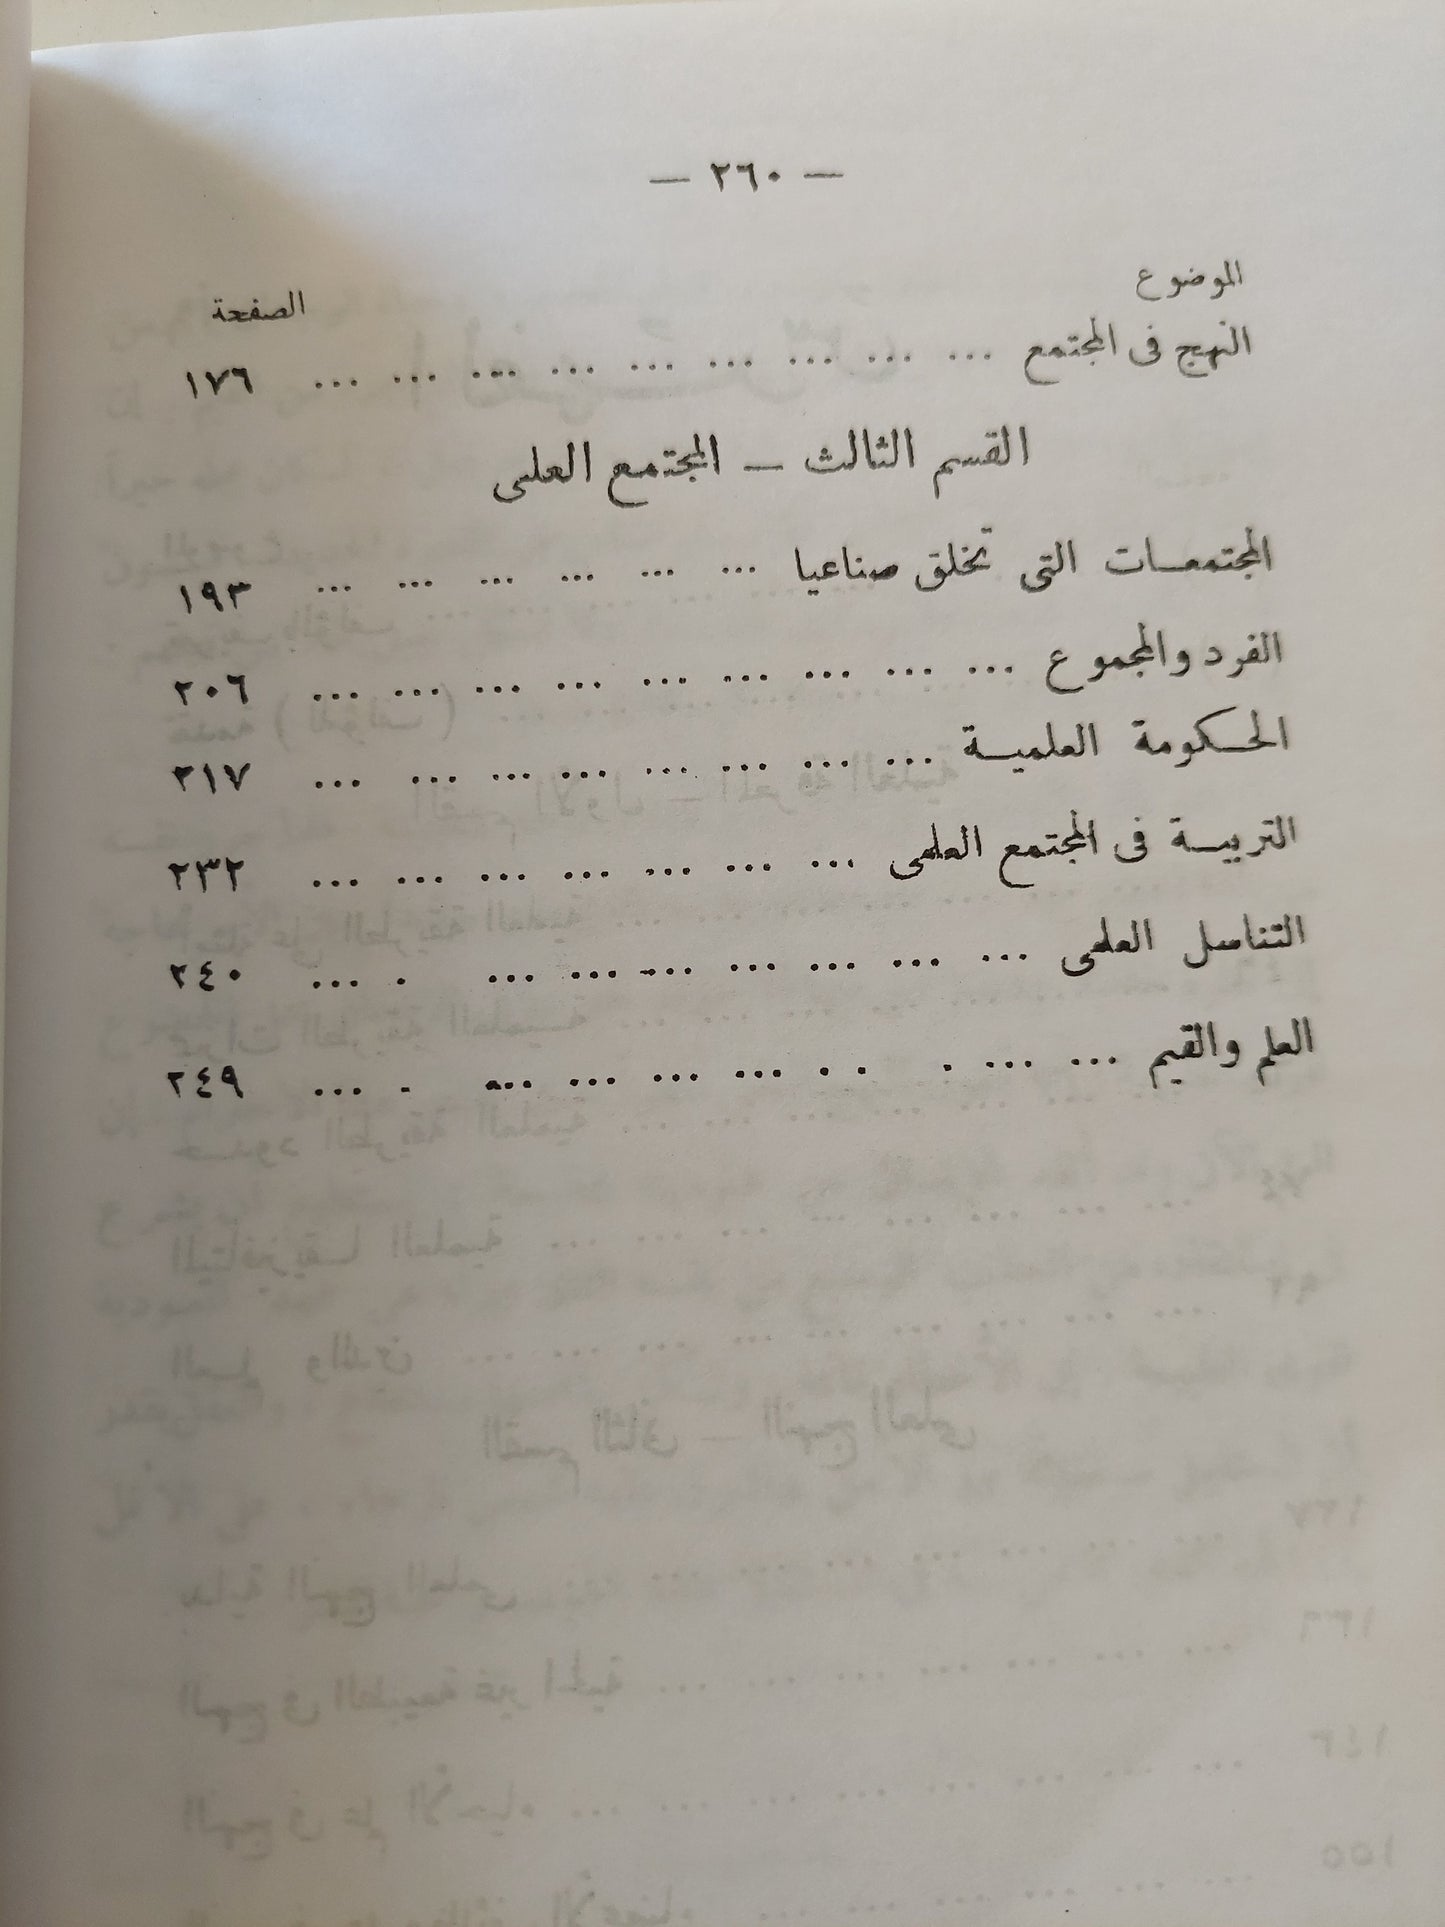 — ٢٦٠ —
الموضوع الصفحة
النهج فى المجتمع ... ... ... ... ... ... ... ... ... ١٧٦
القسم الثالث — المجتمع العلمى
المجتمعات التى تخلق صناعيا ... ... ... ... ... ... ١٩٣
الفرد والمجموع ... ... ... ... ... ... ... ... ... ٢٠٦
الحكومة العلمية ... ... ... ... ... ... ... ... ٢١٧
التربية فى المجتمع العلمى ... ... ... ... ... ... ... ٢٣٢
التناسل العلمى ... ... ... ... ... ... ... . ... ٢٤٠
العلم والقيم ... ... . . . ... ... ... ... . ... ٢٤٩